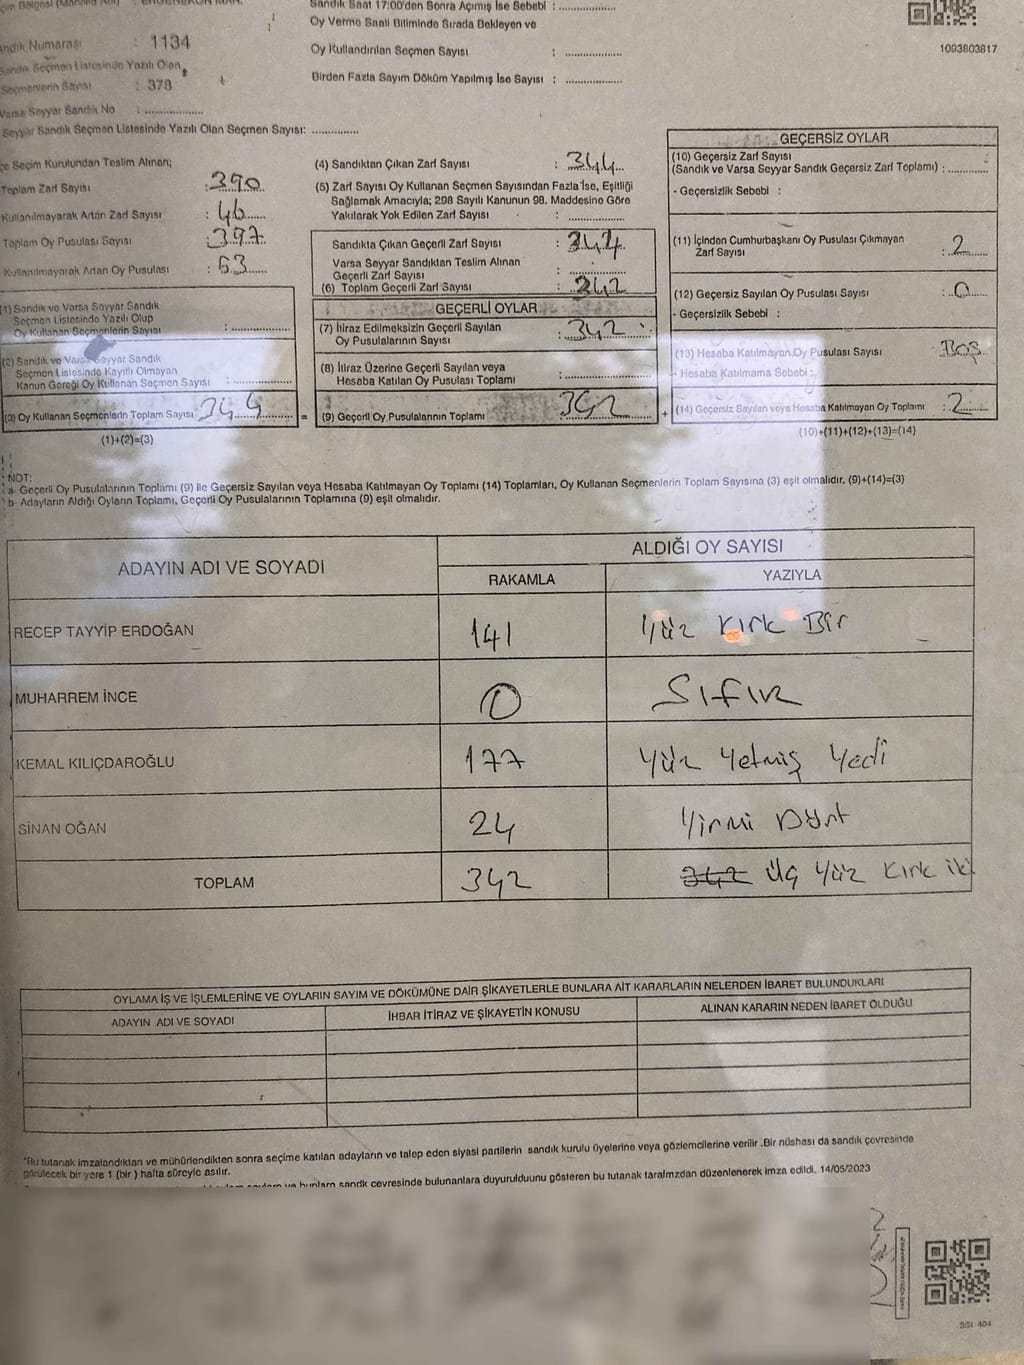 Sandık Saat 17:00'den Sonra Açımış İse Sebebi : ...............
Oy Verme Saati Bitiminde Sırada Bekleyen ve
Oy Kullandırılan Seçmen Sayısı : ...............
Birden Fazla Sayım Döküm Yapılmış İse Sayısı : ...............
1093803817
Sandık Numarası : 1134
Sandık Seçmen Listesinde Yazılı Olan
Seçmenlerin Sayısı : 378
Varsa Seyyar Sandık No : ...............
Seyyar Sandık Seçmen Listesinde Yazılı Olan Seçmen Sayısı: ...............
İlçe Seçim Kurulundan Teslim Alınan;
Toplam Zarf Sayısı : 390
Kullanılmayarak Artan Zarf Sayısı : 46
Toplam Oy Pusulası Sayısı : 397
Kullanılmayarak Artan Oy Pusulası : 53
(1) Sandık ve Varsa Seyyar Sandık
Seçmen Listesinde Yazılı Olup
Oy Kullanan Seçmenlerin Sayısı : ...............
(2) Sandık ve Varsa Seyyar Sandık
Seçmen Listesinde Kayıtlı Olmayan
Kanun Gereği Oy Kullanan Seçmen Sayısı : ...............
(3) Oy Kullanan Seçmenlerin Toplam Sayısı 344
(1)+(2)=(3)
(4) Sandıktan Çıkan Zarf Sayısı : 344
(5) Zarf Sayısı Oy Kullanan Seçmen Sayısından Fazla İse, Eşitliği
Sağlamak Amacıyla; 298 Sayılı Kanunun 98. Maddesine Göre
Yakılarak Yok Edilen Zarf Sayısı : ...............
Sandıkta Çıkan Geçerli Zarf Sayısı :
Varsa Seyyar Sandıktan Teslim Alınan
Geçerli Zarf Sayısı : ...............
(6) Toplam Geçerli Zarf Sayısı : 342
GEÇERLİ OYLAR
(7) İtiraz Edilmeksizin Geçerli Sayılan
Oy Pusulalarının Sayısı : 342
(8) İtiraz Üzerine Geçerli Sayılan veya
Hesaba Katılan Oy Pusulası Toplamı : ...............
= (9) Geçerli Oy Pusulalarının Toplamı 342 +
GEÇERSİZ OYLAR
(10) Geçersiz Zarf Sayısı
(Sandık ve Varsa Seyyar Sandık Geçersiz Zarf Toplamı) : ...............
- Geçersizlik Sebebi :
(11) İçinden Cumhurbaşkanı Oy Pusulası Çıkmayan
Zarf Sayısı : 2
(12) Geçersiz Sayılan Oy Pusulası Sayısı : 0
- Geçersizlik Sebebi :
(13) Hesaba Katılmayan Oy Pusulası Sayısı Boş
- Hesaba Katılmama Sebebi :
(14) Geçersiz Sayılan veya Hesaba Katılmayan Oy Toplamı : 2
(10)+(11)+(12)+(13)=(14)
NOT:
a- Geçerli Oy Pusulalarının Toplamı (9) ile Geçersiz Sayılan veya Hesaba Katılmayan Oy Toplamı (14) Toplamları, Oy Kullanan Seçmenlerin Toplam Sayısına (3) eşit olmalıdır. (9)+(14)=(3)
b- Adayların Aldığı Oyların Toplamı, Geçerli Oy Pusulalarının Toplamına (9) eşit olmalıdır.
ADAYIN ADI VE SOYADI
ALDIĞI OY SAYISI
RAKAMLA YAZIYLA
RECEP TAYYİP ERDOĞAN 141 Yüz Kırk Bir
MUHARREM İNCE 0 Sıfır
KEMAL KILIÇDAROĞLU 177 Yüz Yetmiş Yedi
SİNAN OĞAN 24 Yirmi Dört
TOPLAM 342 342 Üç Yüz Kırk iki
OYLAMA İŞ VE İŞLEMLERİNE VE OYLARIN SAYIM VE DÖKÜMÜNE DAİR ŞİKAYETLERLE BUNLARA AİT KARARLARIN NELERDEN İBARET BULUNDUKLARI
ADAYIN ADI VE SOYADI İHBAR İTİRAZ VE ŞİKAYETİN KONUSU ALINAN KARARIN NEDEN İBARET OLDUĞU
*Bu tutanak imzalandıktan ve mühürlendikten sonra seçime katılan adayların ve talep eden siyasi partilerin sandık kurulu üyelerine veya gözlemcilerine verilir .Bir nüshası da sandık çevresinde
görülecek bir yere 1 (bir ) hafta süreyle asılır.
ve bunların sandık çevresinde bulunanlara duyurulduunu gösteren bu tutanak tarafımızdan düzenlenerek imza edildi. 14/05/2023